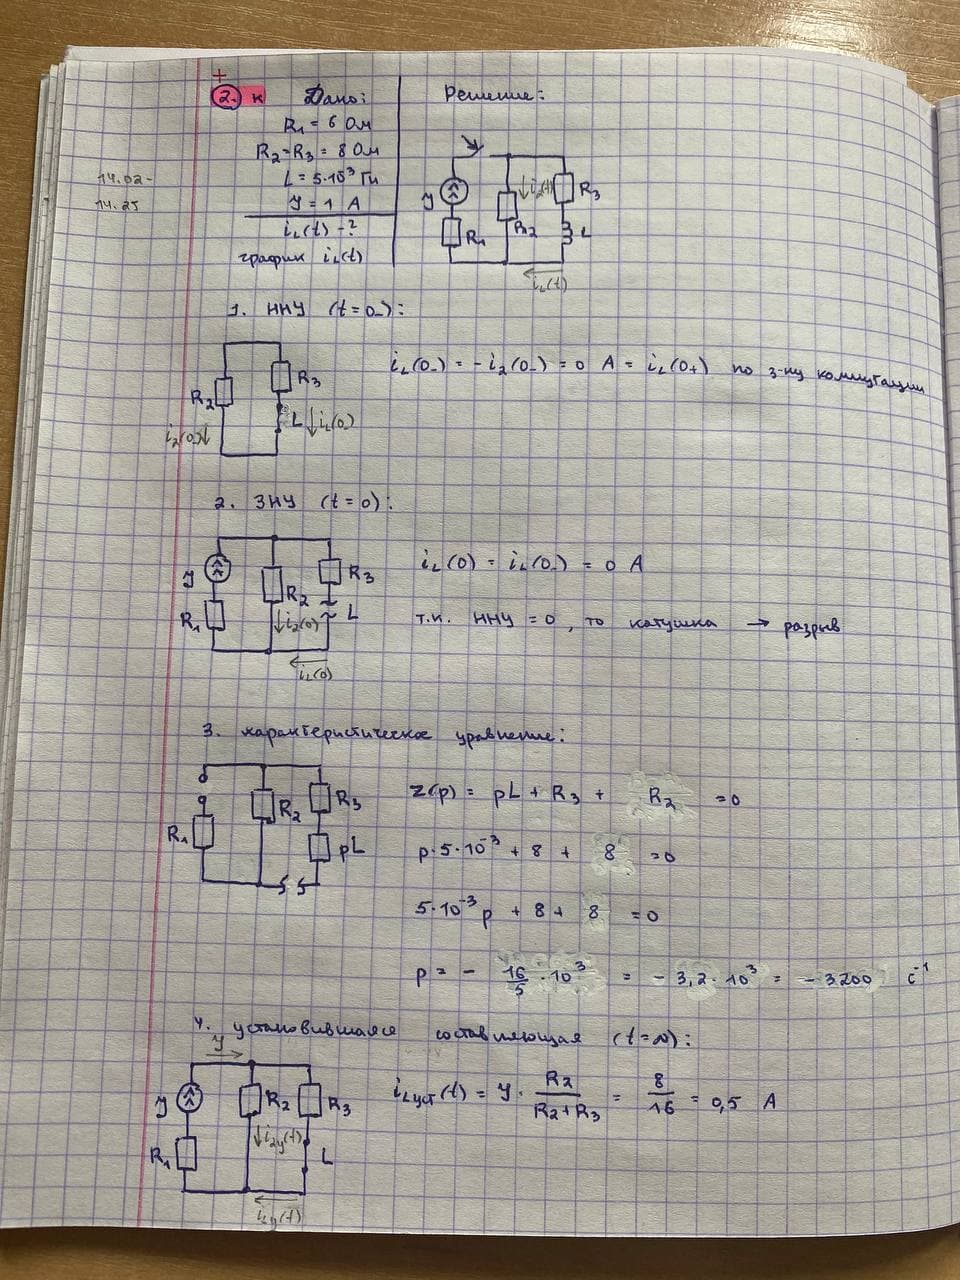 +
2. к Дано: Решение:
R₁ = 6 Ом
R₂ = R₃ = 8 Ом
14.02-
14.25
L = 5·10⁻³ Гн
Y = 1 А
i_L(t) - ?
график i_L(t)
Y R₁ ↓i₂(t) R₂ R₃ L
i_L(t)
1. ННУ (t=0₋):
R₂ R₃ L ↓i_L(0₋)
i₂(0₋)↓
i_L(0₋) = -i₂(0₋) = 0 А = i_L(0₊) по з-ну коммутации
2. ЗНУ (t=0):
Y R₁ R₂ R₃ L
↓i₂(0)
i_L(0)
i_L(0) = i_L(0₋) = 0 А
т.к. ННУ = 0, то катушка → разрыв
3. характеристическое уравнение:
R₁ R₂ R₃ pL
Z(p) = pL + R₃ + R₂ = 0
p·5·10⁻³ + 8 + 8 = 0
5·10⁻³ p + 8 + 8 = 0
p = - 16/5 · 10³ = - 3,2·10³ = - 3200 с⁻¹
4. установившаяся составляющая (t=∞):
Y
Y R₁ R₂ R₃ L
↓i₂у(t)
i_Lу(t)
i_L уст(t) = Y · R₂/(R₂+R₃) = 8/16 = 0,5 А